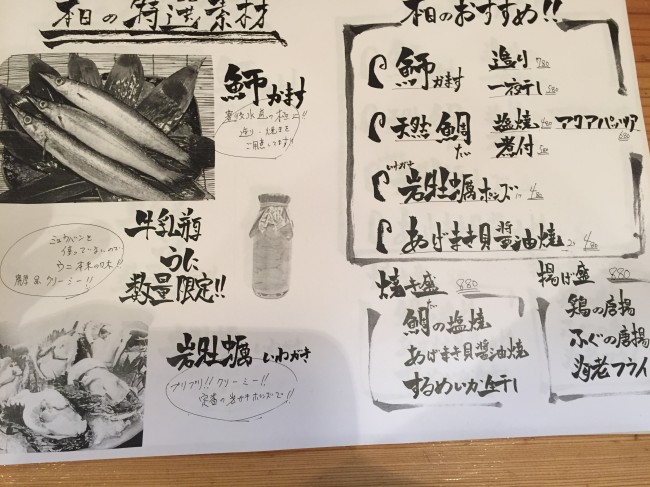 本日の特選素材
鰤かます
豊後水道の極上!!
造り・焼きを
ご用意してます!!
牛乳瓶
うに
数量限定!!
ミョウバンを
使っていないので
ウニ本来の味!!
濃厚 クリーミー!!
岩牡蠣 いわがき
プリプリ!! クリーミー!!
定番の岩ガキポン酢で!!
本日のおすすめ!!
鰤かます 造り 780
一夜干し 580
天然鯛 だい 塩焼 480 アクアパッツア 680
煮付 580
いわがき
岩牡蠣ポンズ 1ヶ 480
あげまき貝醤油焼 2ヶ 480
焼き盛 880
鯛の塩焼 だい
あげまき貝醤油焼
するめいか一夜干し
揚げ盛 880
鶏の唐揚
ふぐの唐揚
海老フライ